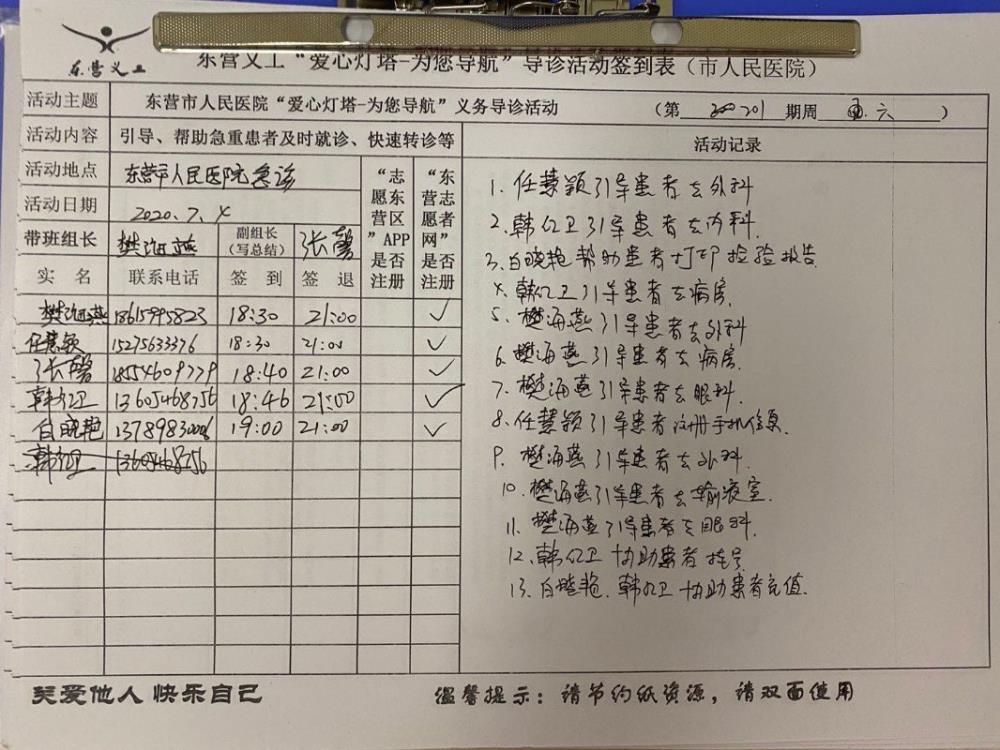 东营义工
东营义工“爱心灯塔-为您导航”导诊活动签到表（市人民医院）
活动主题 东营市人民医院“爱心灯塔-为您导航”义务导诊活动 （第 期周 六 ）
活动内容 引导、帮助急重患者及时就诊、快速转诊等 活动记录
活动地点 东营市人民医院急诊
活动日期 2020.7.4
带班组长 樊海燕 副组长（写总结） 张馨
“志愿东营区”APP是否注册
“东营志愿者网”是否注册
实 名 联系电话 签 到 签 退
樊海燕 18615995823 18:30 21:00 ✓
任慧颖 15275633376 18:30 21:00 ✓
张馨 18554609779 18:40 21:00 ✓
韩红卫 13605468756 18:46 21:00 ✓
白晓艳 13789830006 19:00 21:00 ✓
1. 任慧颖引导患者去外科
2. 韩红卫引导患者去内科
3. 白晓艳帮助患者打印检验报告
4. 韩红卫引导患者去病房
5. 樊海燕引导患者去外科
6. 樊海燕引导患者去病房
7. 樊海燕引导患者去眼科
8. 任慧颖引导患者注册手机信息
9. 樊海燕引导患者去外科
10. 樊海燕引导患者去输液室
11. 樊海燕引导患者去眼科
12. 韩红卫协助患者挂号
13. 白晓艳、韩红卫协助患者充值
关爱他人 快乐自己
温馨提示：请节约纸资源，请双面使用